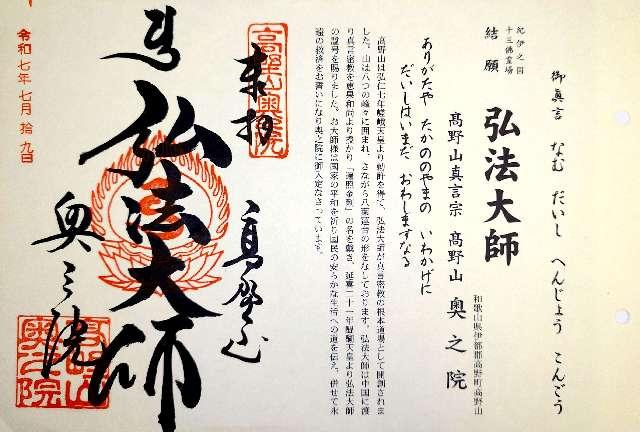 御真言 なむ だいし へんじょう こんごう
紀伊之国
十三佛霊場
結願 弘法大師
和歌山県伊都郡高野町高野山
高野山真言宗 高野山 奥之院
ありがたや たかののやまの いわかげに
だいしはいまだ おわしますなる
高野山は弘仁七年嵯峨天皇より勅許を得て、弘法大師が真言密教の根本道場として開創されま
した。山は八つの峰々に囲まれ、さながら八葉蓮台の形をなしております。弘法大師は中国に渡
り真言密教を恵果和尚より授かり「遍照金剛」の名を戴き、延喜二十一年醍醐天皇より弘法大師
の諡号を賜りました。お大師様は国家の平和を祈り国民の安らかな生活への道を伝え、併せて永
遠の救済をお誓いになり奥之院に御入定なさっています。
高野山奥院
奉拝
高野山
弘法大師
奥之院
高野山
奥之院
令和七年七月拾九日